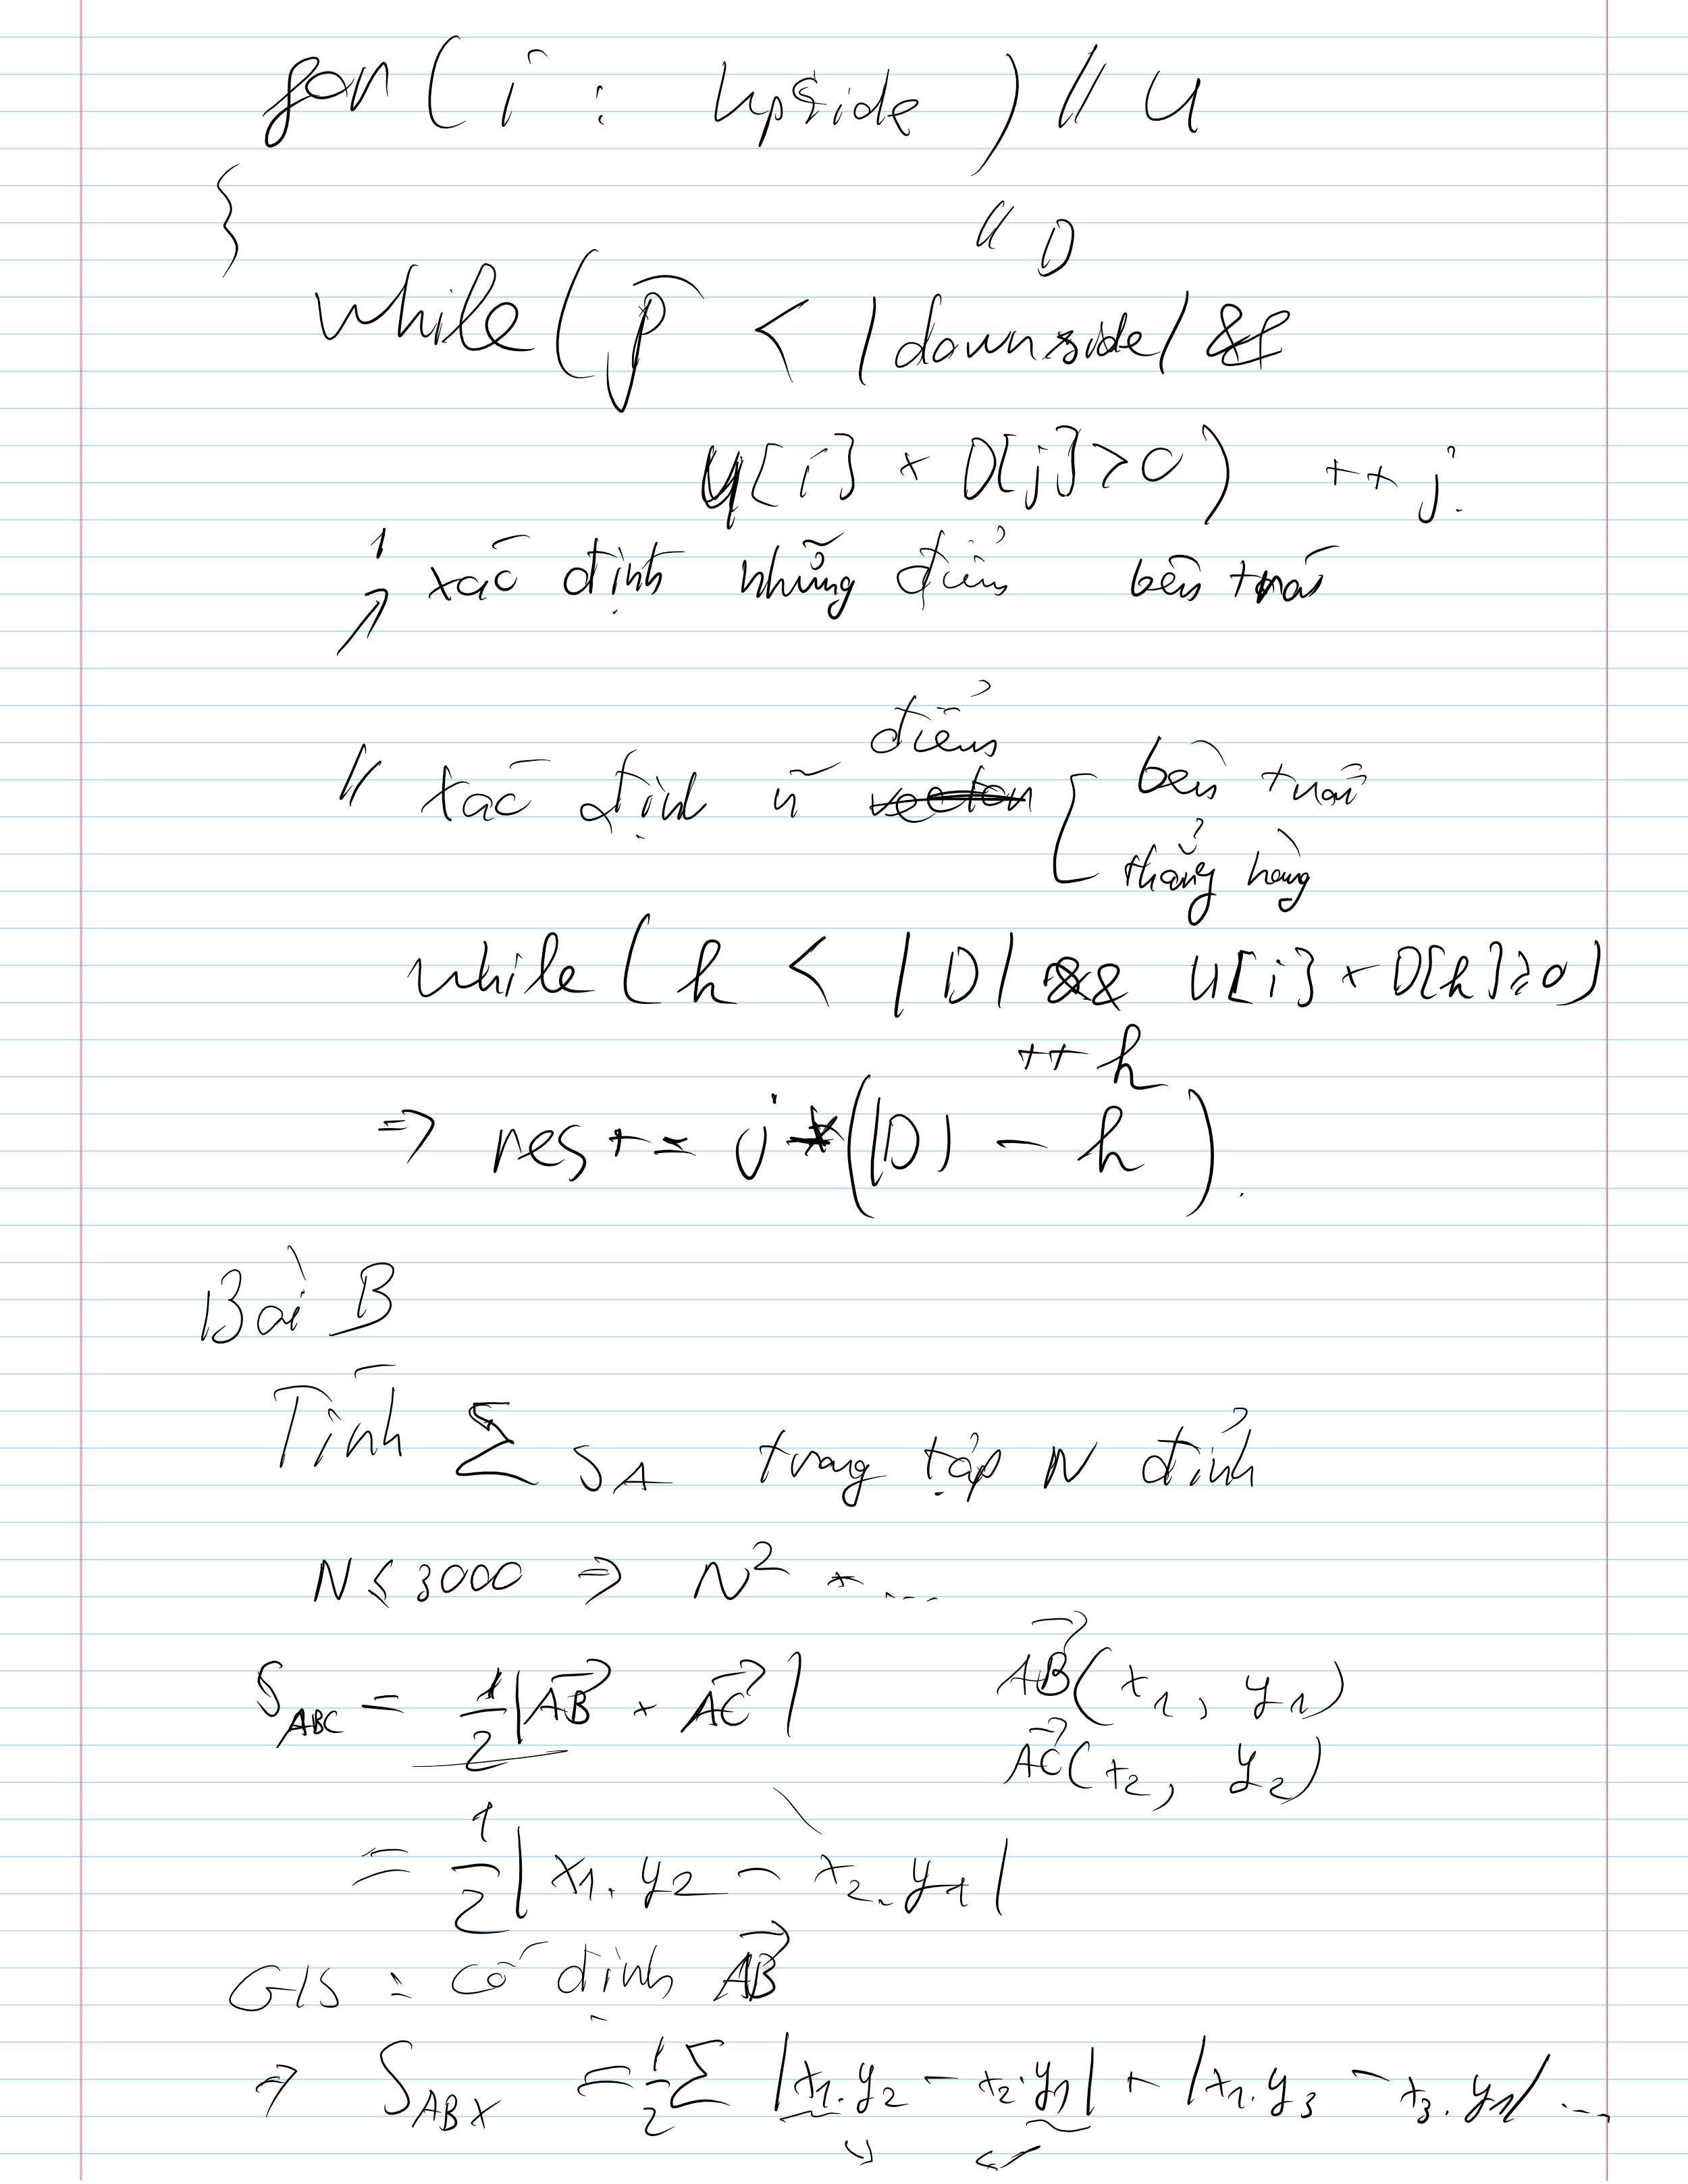 for ( i : Upside ) // U
{
// D
while ( j < |downside| &&
U[i] × D[j] > 0 ) ++ j.
xác định những điểm bên trái
điểm
// xác định ~ bên trái
thẳng hàng
while ( h < |D| && U[i] × D[h] ≥ 0 )
++ h
=> res += j * ( |D| - h ).
Bài B
Tính ∑ S∆ trong tập N đỉnh
N ≤ 3000 => N² * ...
S_ABC = 1/2 | AB × AC | AB ( x₁, y₁ )
AC ( x₂, y₂ )
= 1/2 | x₁. y₂ - x₂. y₁ |
G/S : cố định AB
=> S_ABX = 1/2 ∑ | x₁. y₂ - x₂. y₁ | + | x₁. y₃ - x₃. y₁ | ...